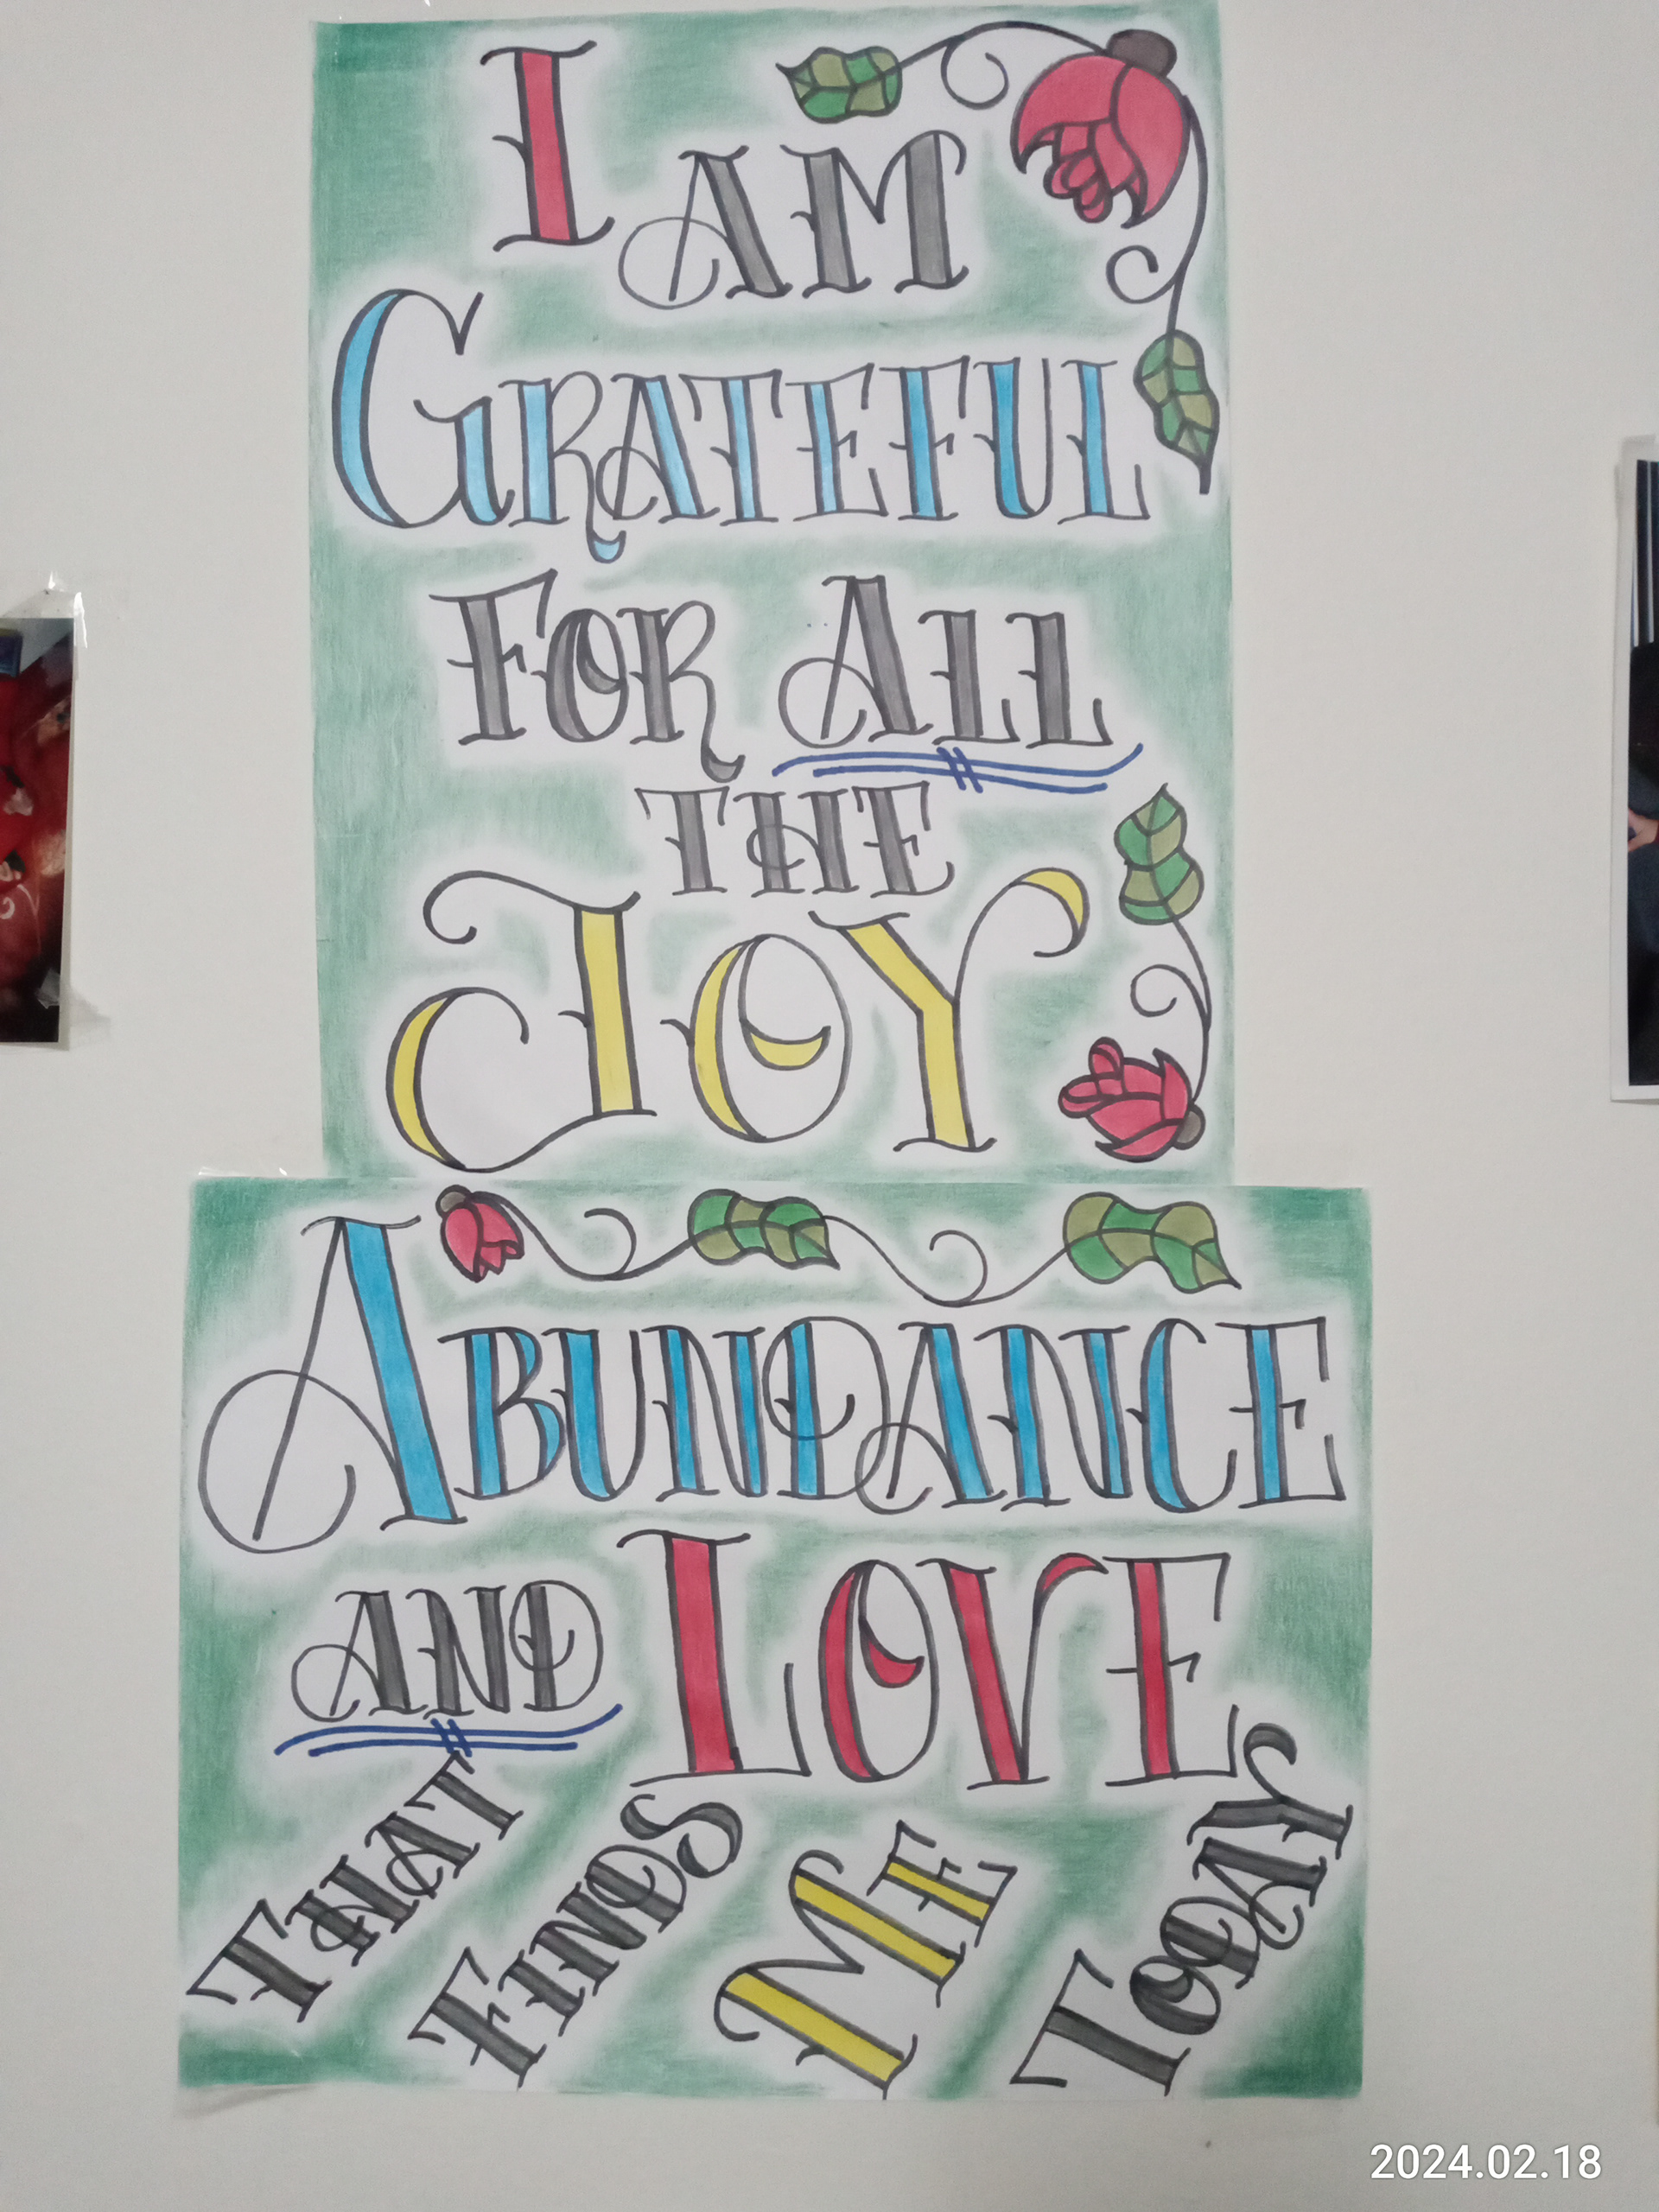 I AM
GRATEFUL
FOR ALL
THE
JOY
ABUNDANCE
AND LOVE
THAT FINDS ME TODAY
2024.02.18